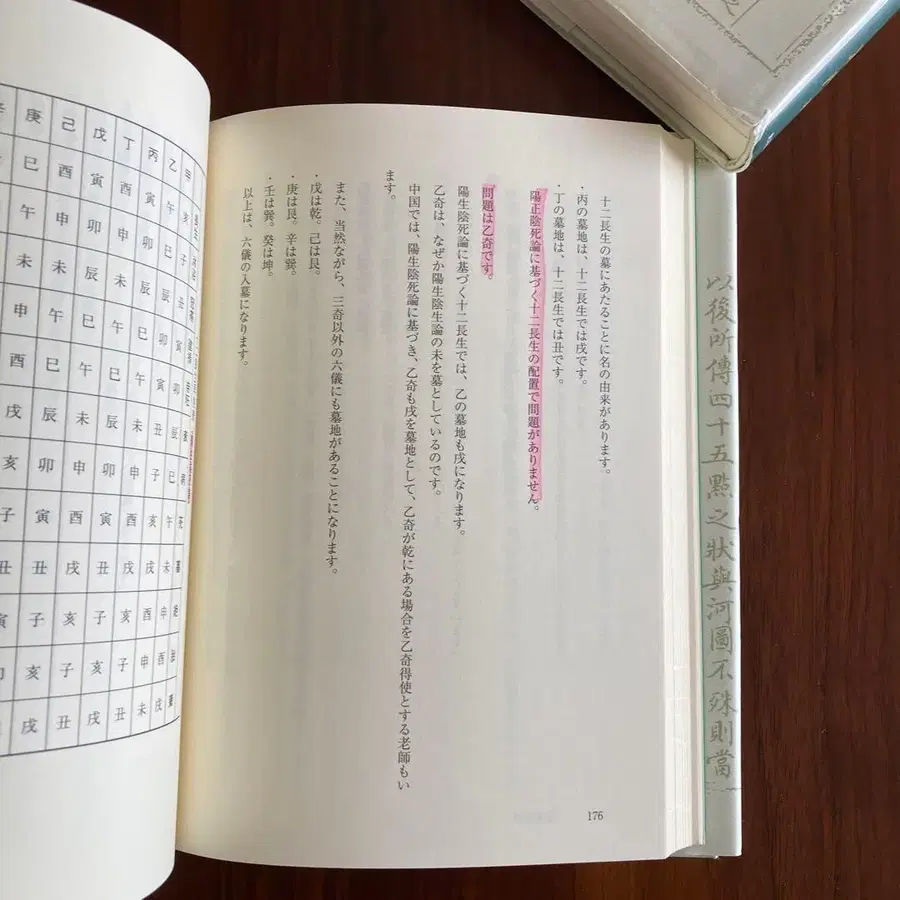 以後所傳四十五點之狀與河圖不殊則當
十二長生の墓にあたることに名の由来があります。
・丙の墓地は、十二長生では戌です。
・丁の墓地は、十二長生では丑です。
陽正陰死論に基づく十二長生の配置で問題がありません。
問題は乙奇です。
陽生陰死論に基づく十二長生では、乙の墓地も戌になります。
乙奇は、なぜか陽生陰生論の未を墓としているのです。
中国では、陽生陰死論に基づき、乙奇も戌を墓地として、乙奇が乾にある場合を乙奇得使とする老師もい
ます。
また、当然ながら、三奇以外の六儀にも墓地があることになります。
・戊は乾。己は艮。
・庚は艮。辛は巽。
・壬は巽。癸は坤。
以上は、六儀の入墓になります。
176
庚 己 戊 丁 丙 乙 甲
巳 酉 寅 酉 寅 午 亥
午 申 卯 申 卯 巳 子
未 未 辰 未 辰 辰 丑
申 午 巳 午 巳 卯 寅
巳 午 巳 午 寅 卯
戌 辰 未 辰 未 丑 辰
亥 卯 申 卯 申 子 巳
子 寅 酉 寅 酉 亥 午
丑 丑 戌 丑 戌 戌 未 墓
子 亥 子 亥 酉 申
亥 子 亥 子 申 酉
戌 丑 戌 丑 未 戌 養